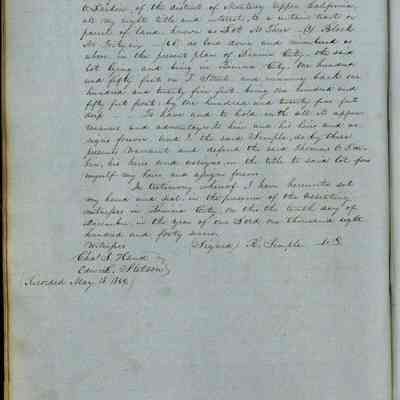 to Larkin, of the district of Monterey Upper California,
all my right title and interest, to a certain tract or
parcel of land known as Lot No Three (3) Block
No Forty six (46) as laid down and numbered as
above in the present plan of Benicia City, the said
lot lying and being in Benicia City. One hundred
and fifty feet on I Street and running back one
hundred and twenty five feet being one hundred and
fifty feet front, by one hundred and twenty five feet
deep To have and to hold with all its appur
tenances and advantages to him and his heirs and as
signs forever, and I the said Semple, do by these
presents Warrant and defend the said Thomas O Lar
kin, his heirs and assigns, in the title to said lot from
myself my heirs and assigns forever.
In testimony whereof I have hereunto set
my hand and seal, in the presence of the subscribing
witnesses in Benicia City, on this the tenth day of
December, in the year of our Lord one thousand eight
hundred and forty seven.
Witnesses (Signed) R. Semple L.S.
Chas. S. Hand
Edward Stetson
Recorded May 15